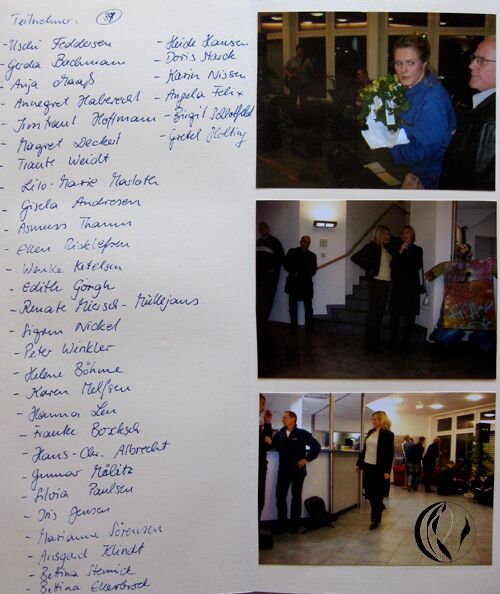 Teilnehmer: 39
- Uschi Feddersen
- Gerda Bachmann
- Anja Maaß
- Annegret Haberecht
- Irmtraut Hoffmann
- Margret Deckert
- Traute Weidt
- Lilo-Marie Masloth
- Gisela Andresen
- Asmuss Thamm
- Ellen Ricklefsen
- Wenke Ketelsen
- Edith Görgh
- Renate Miesch-Müllejans
- Sigrun Nickel
- Peter Winkler
- Helene Böhme
- Karen Melfsen
- Hanna Leu
- Frauke Boscksch
- Hans-Chr. Albrecht
- Gunnar Mälitz
- Silvia Paulsen
- Iris Jensen
- Marianne Sörensen
- Ansgard Klindt
- Bettina Sternick
- Bettina Ellerbrock
- Heide Hansen
- Doris Marck
- Karin Nissen
- Angela Felix
- Birgit Schlottfeld
- Gretel Holling